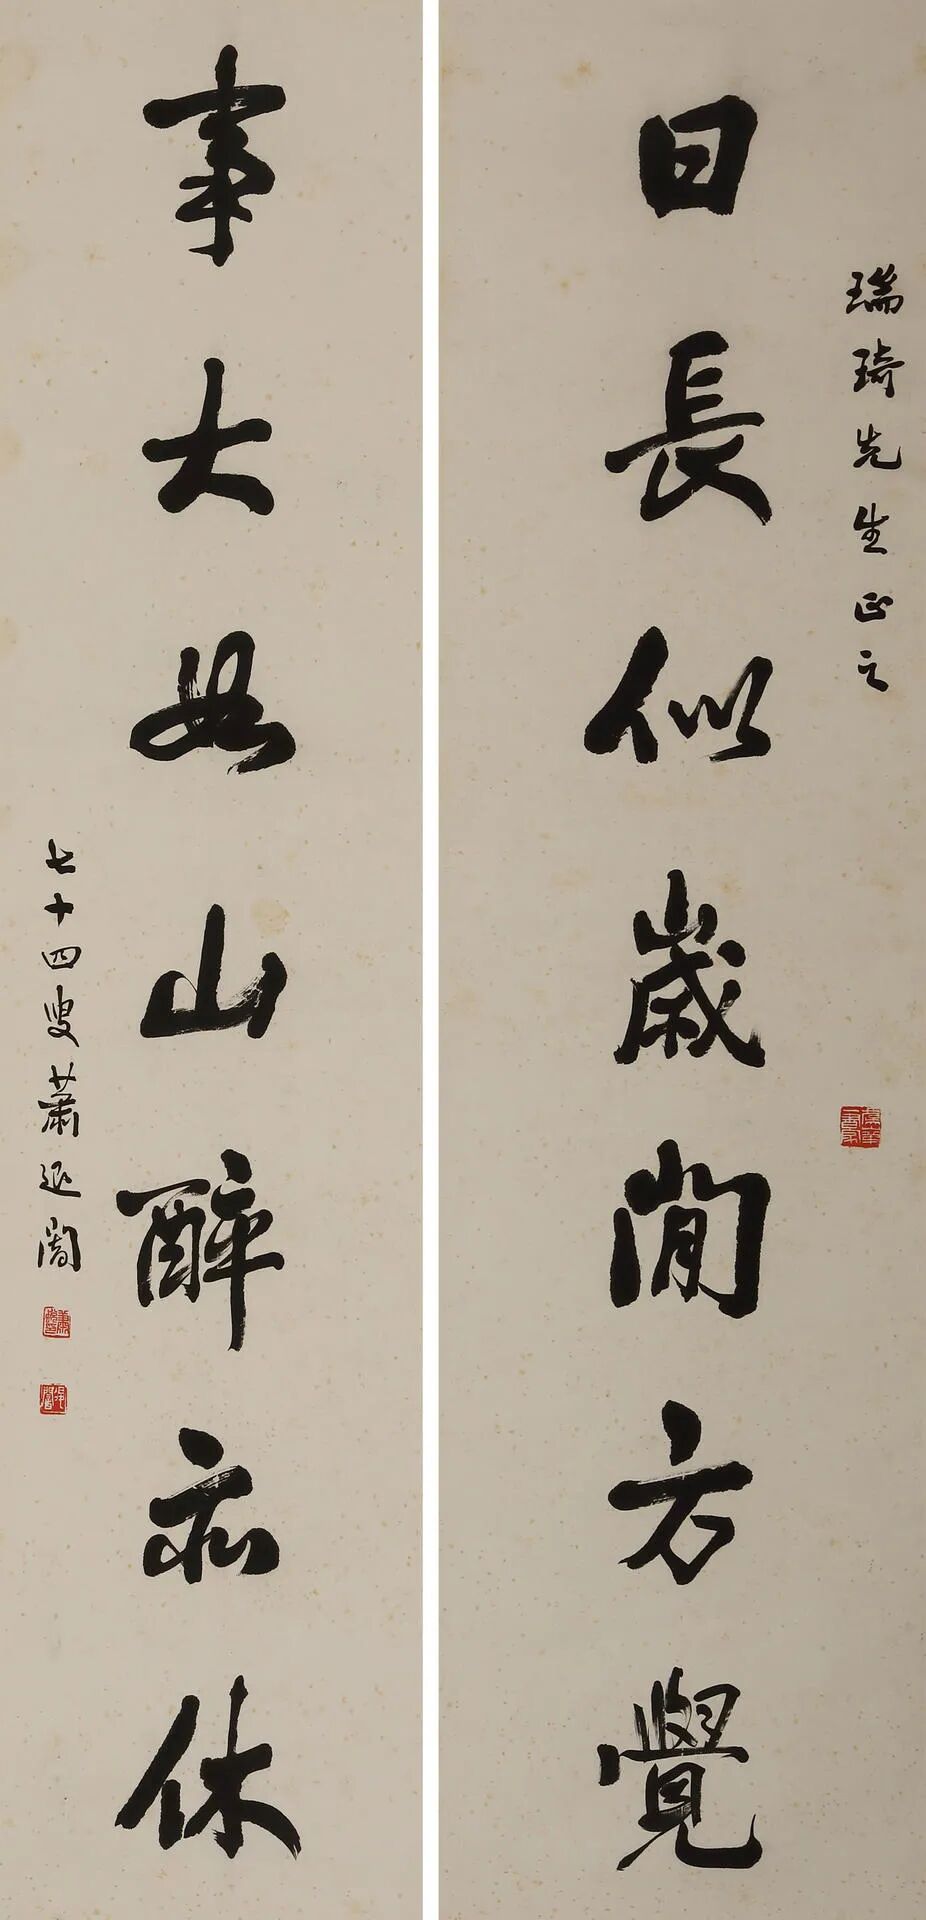 瑞琦先生正之
日長似歲閒方覺
事大如山醉亦休
七十四叟蕭退闇